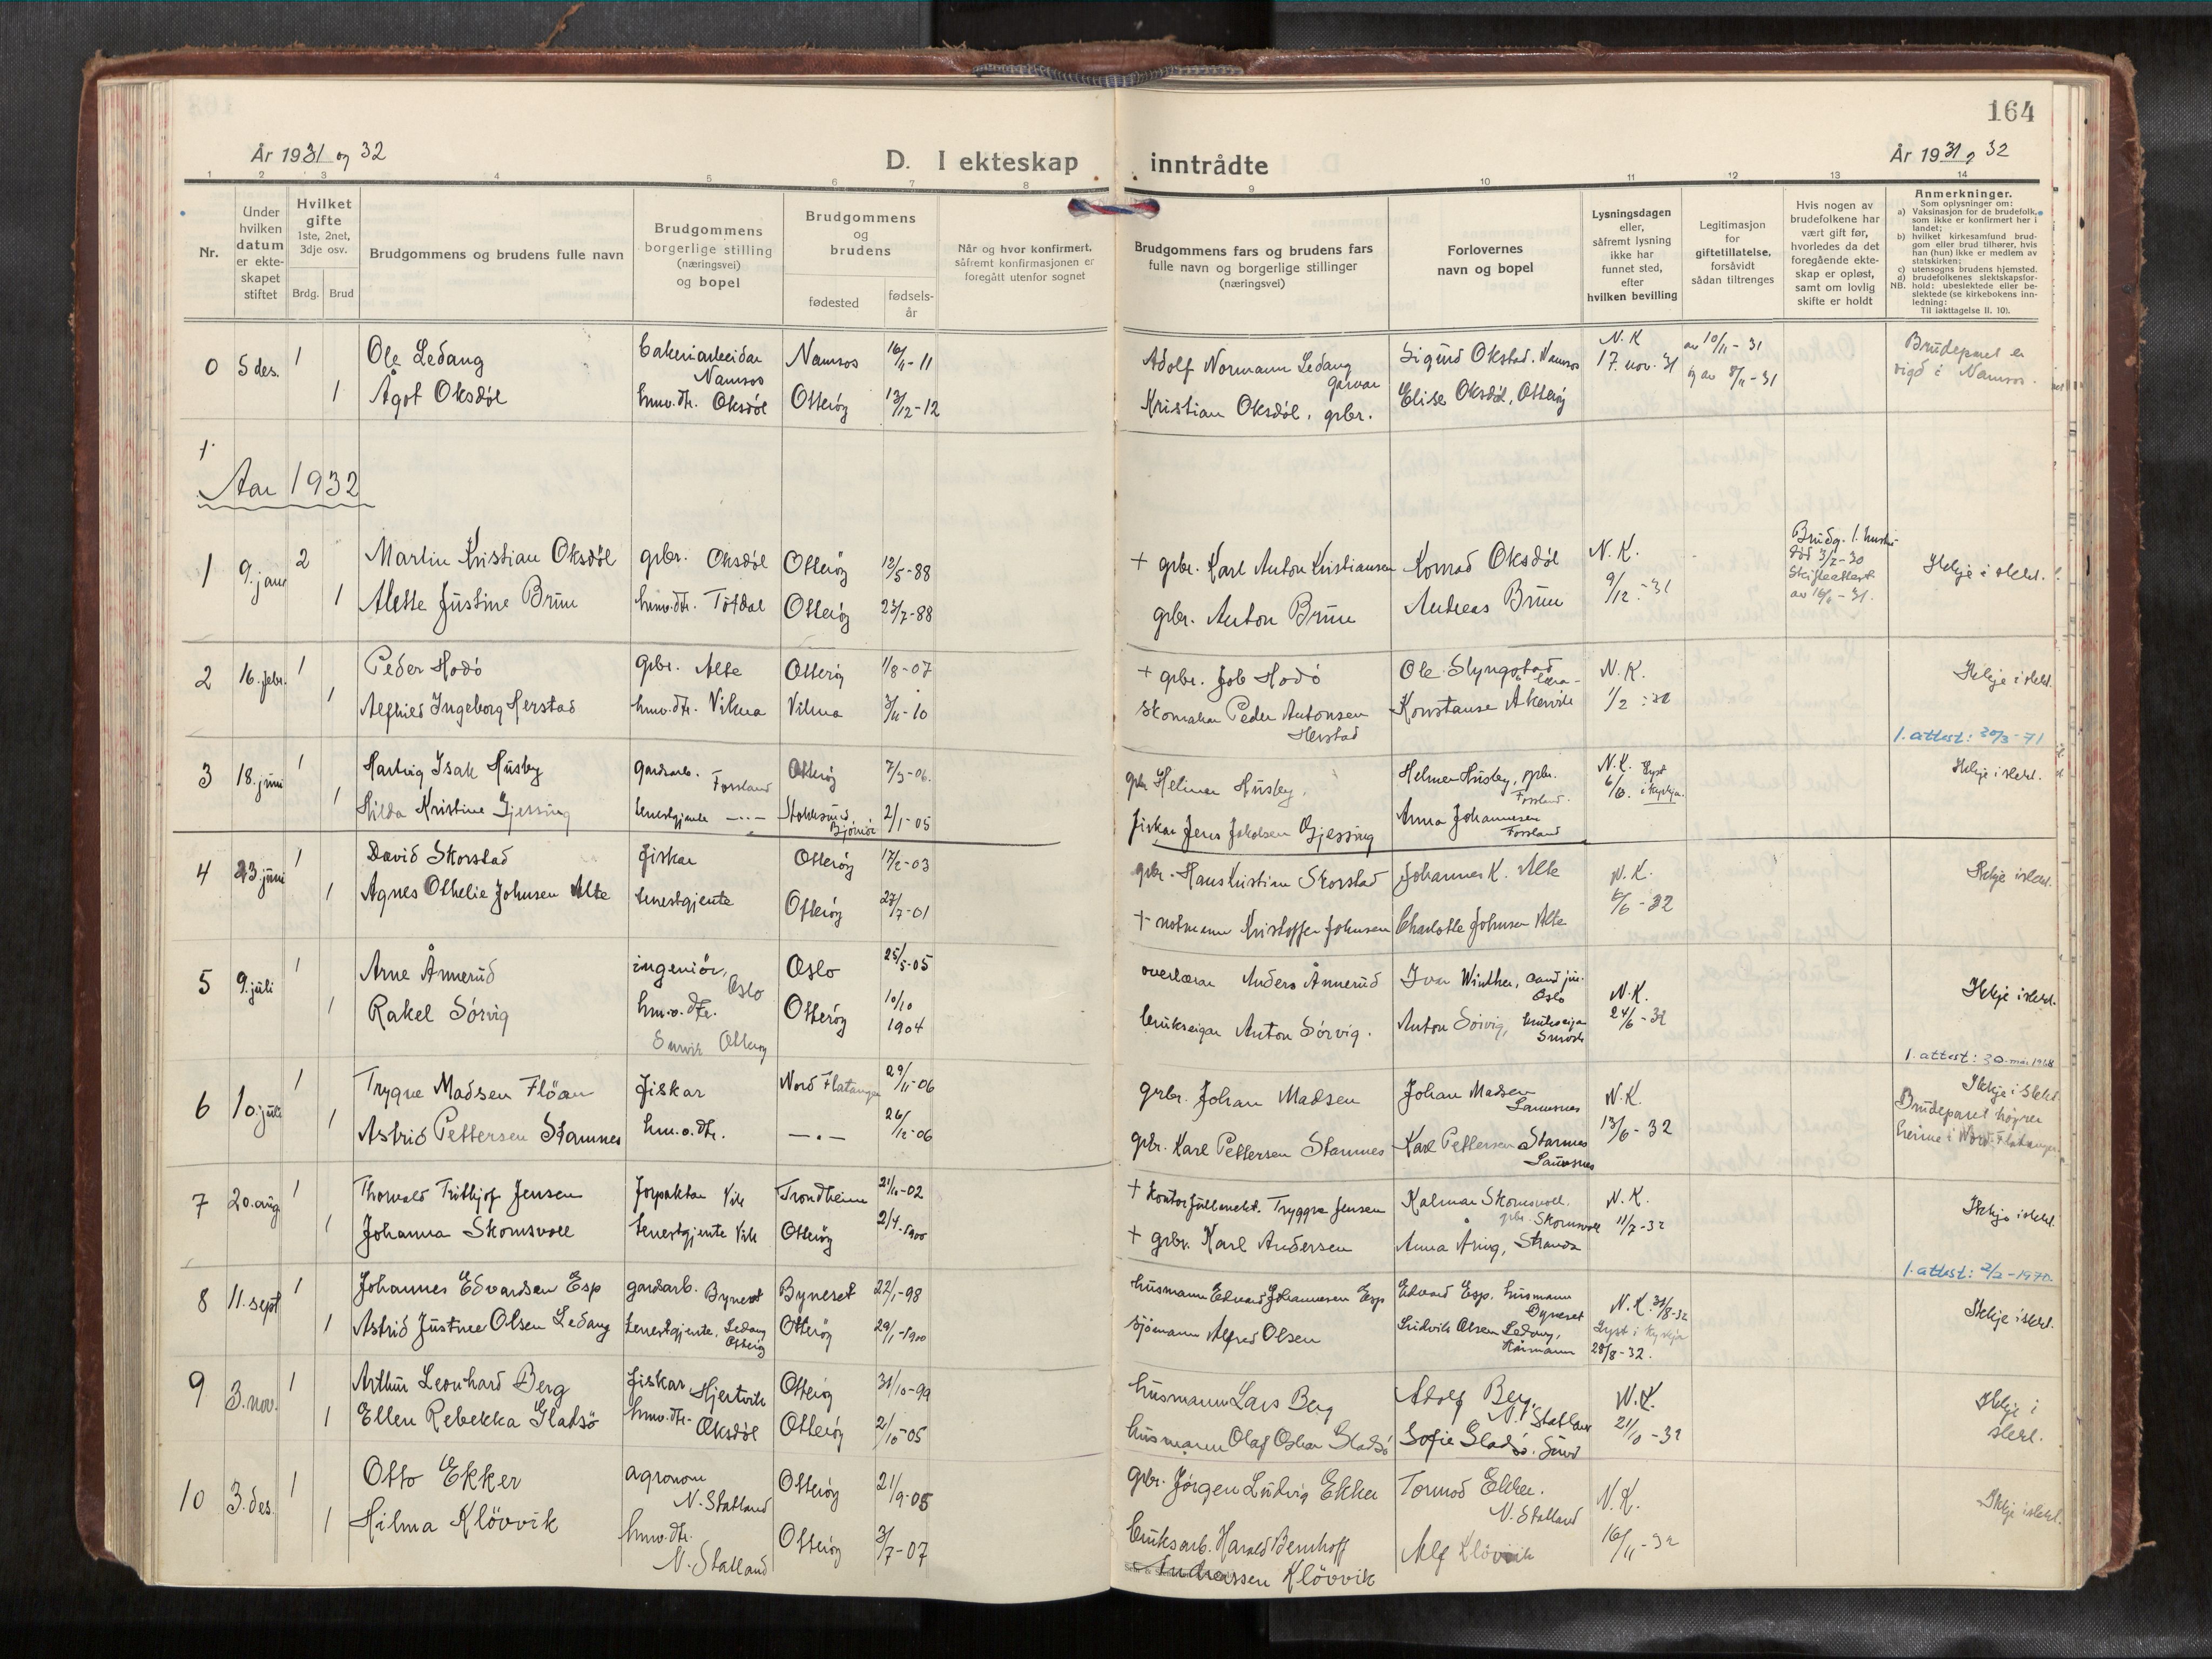 164
År 1931 og 32
D. I ekteskap inntrådte
År 1931 og 32
1 2 3 4 5 6 7 8 9 10 11 12 13 14
Nr.
Under
hvilken
datum
er ekte-
skapet
stiftet
Hvilket
gifte
1ste, 2net,
3dje osv.
Brdg. Brud
Brudgommens og brudens fulle navn
Brudgommens
borgerlige stilling
(næringsvei)
og bopel
Brudgommens
og
brudens
fødested
fødsels-
år
Når og hvor konfirmert,
såfremt konfirmasjonen er
foregått utenfor sognet
Brudgommens fars og brudens fars
fulle navn og borgerlige stillinger
(næringsvei)
Forlovernes
navn og bopel
Lysningsdagen
eller,
såfremt lysning
ikke har
funnet sted,
efter
hvilken bevilling
Legitimasjon
for
giftetillatelse,
forsåvidt
sådan tiltrenges
Hvis nogen av
brudefolkene har
vært gift før,
hvorledes da det
foregående ekte-
skap er opløst,
samt om lovlig
skifte er holdt
Anmerkninger.
Som oplysninger om:
a) Vaksinasjon for de brudefolk,
som ikke er konfirmert her i
landet;
b) hvilket kirkesamfund brud-
gom eller brud tilhører, hvis
han (hun) ikke er medlem av
statskirken;
c) utensogns brudens hjemsted.
d) brudefolkenes slektskapsfor-
NB. hold: ubeslektede eller be-
slektede (se kirkebokens inn-
ledning:
Til iakttagelse II. 10).
0 5 des. 1 Ole Ledang bakeriarbeidar Namsos Namsos 16/11-11 Adolf Normann Ledang garvar Sigurd Okstad. Namsos N.K 17. nov. 31 av 10/11-31 Brudeparet er
1 Ågot Oksdøl hmv.dtr. Oksdøl Otterøy 13/12-12 Kristian Oksdøl, grbr. Elise Oksdøl, Otterøy og av 8/11-31 vigd i Namsos.
Aar 1932
1 9. jan 2 Martin Kristian Oksdøl grbr. Oksdøl Otterøy 12/5-88 + grbr. Karl Anton Kristiansen Konrad Oksdøl N.K. Brudg. 1. hustru
død 3/2-30
Skifteattest
Ikkje i slekt.
1 Alette Justine Brun hmv.dtr. Tøtdal Otterøy 23/7-88 grbr. Anton Brun Andreas Brun 9/12-31
2 16. febr. 1 Peder Hodø grbr. Alte Otterøy 1/8-07 + grbr. Job Hodø Ole Slyngstad N.K. Ikkje i slekt.
1 Alfhild Ingeborg Herstad hmv.dtr. Vikna Vikna 3/11-10 skomakar Peder Antonsen Herstad Konstanse Åkervik 1/2
1. attest: 20/3-71
3 18. juni 1 Hartvig Isak Husby gardsarb. Forsland Otterøy 7/3-06. grbr Helmer Husby. Helmer Husby, grbr. Forsland. N.K. Lyst 6/6. i kyrkja. Ikkje i slekt.
1 Hilda Kristine Gjessing tenestgjente —"— Stokksund Bjørnør 2/1-05 fiskar Jens Jakobsen Gjessing Anna Johannesen Forsland
4 23. juni 1 David Skorstad fiskar Otterøy 17/2-03 grbr. Hans Kristian Skorstad Johannes K. Alte N.K. Ikkje i slekt.
1 Agnes Othelie Johnsen Alte tenestgjente Otterøy 27/7-01 + notmann Kristoffer Johnsen Charlotte Johnsen Alte 6/6-32
5 9. juli 1 Arne Ånnerud ingeniør, Oslo Oslo 25/5-05 overlærar Anders Ånnerud Ivar Winther, cand jur. Oslo N.K. Ikkje i slekt.
1 Rakel Sørvig hm.v.dtr. Otterøy 10/10 1904 brukseigar Anton Sørvig. Anton Sørvig, brukseigar 24/6-32
1. attest: 30. mai 1968
6 10. juli 1 Trygve Madsen Fløan fiskar Nord Flatanger 29/11-06 grbr. Johan Madsen Johan Madsen Lauvsnes N.K. Ikkje i slekt.
Brudeparet høyrer
heime i Nord-Flatanger.
1 Astrid Pettersen Stamnes hm.v.dtr. —"— 26/12-06 grbr. Karl Pettersen Stamnes Karl Pettersen Stamnes Lauvsnes 13/6-32
7 20. aug 1 Thorvald Fritthjof Jensen forpaktar Vik Trondheim 21/10-02 + kontorfullmekt. Tryggve Jensen Kalmar Skomsvoll. grbr. Skomsvoll N.K. 11/7-32 Ikkje i slekt.
1 Johanna Skomsvoll tenestgjente Vik Otterøy 2/4-1900 + grbr. Karl Andersen Anna Åring, Strand
1. attest: 2/2-1970.
8 11. sept 1 Johannes Edvardsen Esp gardsarb. Byneset Byneset 22/1-98 husmann Edvard Johannesen Esp Edvard Esp. husmann Byneset N.K. 31/8-32 Ikkje i slekt.
1 Astrid Justine Olsen Ledang tenestgjente, Ledang Otterøy Otterøy 29/1-1900 sjømann Alfred Olsen Ludvik Olsen Ledang, Lyst i kyrkja 28/8-32.
9 3. nov. 1 Arthur Leonhard Berg fiskar Hjertvik Otterøy 31/10-99 husmann Lars Berg Adolf Berg, N. Statland N.K. Ikkje i
1 Ellen Rebekka Gladsø hmv.dtr. Oksdøl Otterøy 2/10-05 husmann Olaf Oskar Gladsø Sofie Gladsø. Sund 21/10-32 slekt.
10 3. des. 1 Otto Ekker agronom N. Statland Otterøy 21/9-05 grbr. Jørgen Ludvig Ekker Tormod Ekker. N. Statland N.K. Ikkje i slekt.
1 Hilma Kløvvik hmv.dtr. N. Statland Otterøy 3/7-07 bruksarb. Harald Bernhoff Andreassen Kløvvik Alf Kløvvik 16/11-32